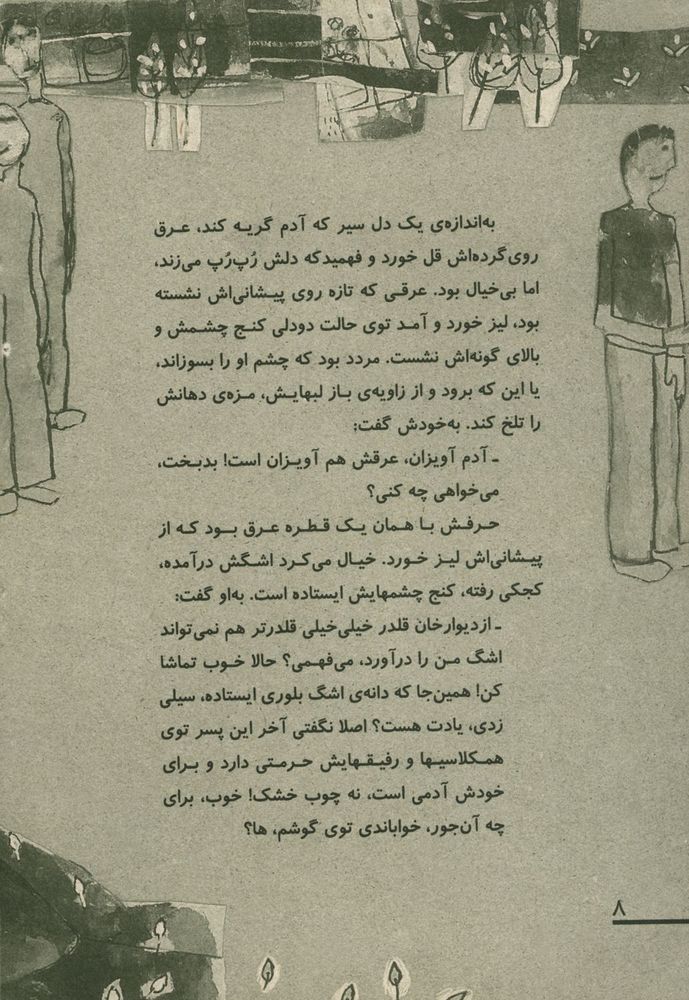 به‌اندازه‌ی یک دل سیر که آدم گریه کند، عرق
روی گرده‌اش قل خورد و فهمیدکه دلش رُپ‌رُپ می‌زند،
اما بی‌خیال بود. عرقی که تازه روی پیشانی‌اش نشسته
بود، لیز خورد و آمد توی حالت دودلی کنج چشمش و
بالای گونه‌اش نشست. مردد بود که چشم او را بسوزاند،
یا این که برود و از زاویه‌ی باز لبهایش، مزه‌ی دهانش
را تلخ کند. به‌خودش گفت:
ـ آدم آویزان، عرقش هم آویزان است! بدبخت،
می‌خواهی چه کنی؟
حرفش با همان یک قطره عرق بود که از
پیشانی‌اش لیز خورد. خیال می‌کرد اشگش درآمده،
کجکی رفته، کنج چشمهایش ایستاده است. به‌او گفت:
ـ ازدیوارخان قلدر خیلی‌خیلی قلدرتر هم نمی‌تواند
اشگ من را درآورد، می‌فهمی؟ حالا خوب تماشا
کن! همین‌جا که دانه‌ی اشگ بلوری ایستاده، سیلی
زدی، یادت هست؟ اصلا نگفتی آخر این پسر توی
همکلاسیها و رفیقهایش حرمتی دارد و برای
خودش آدمی است، نه چوب خشک! خوب، برای
چه آن‌جور، خواباندی توی گوشم، ها؟
۸